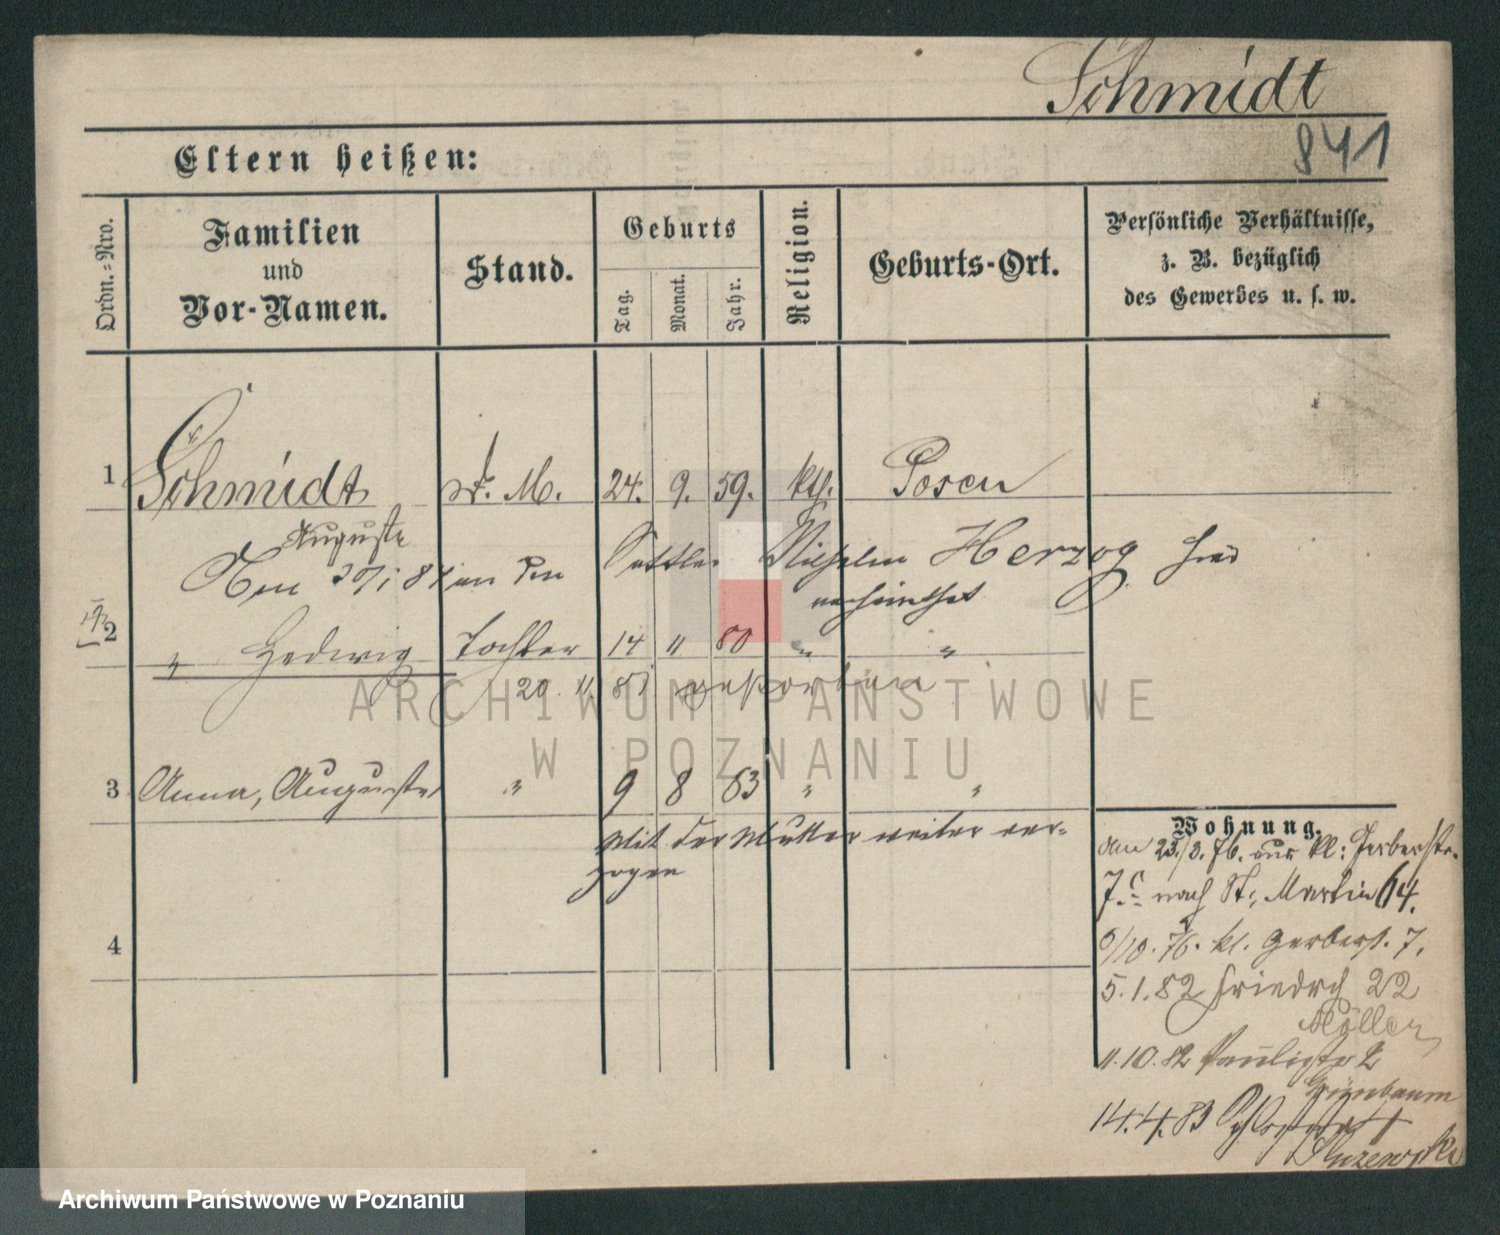 Schmidt
841
Eltern heißen:
Ordn.-Nro.
Familien
und
Vor-Namen.
Stand.
Geburts
Tag.
Monat.
Jahr.
Religion.
Geburts-Ort.
Persönliche Verhältnisse,
z. B. bezüglich
des Gewerbes u. s. w.
1 Schmidt M. 24. 9. 59. kth. Posen
Auguste
Wilhelm Herzog
verheirathet
2 " Hedwig Tochter 14 " 80 " "
20. 11. gestorben
3 Anna, Auguste " 9 8 83 " "
Mit der Mutter weiter ver-
zogen
4
Wohnung.
den 23./3. 76. aus kl: Gerberstr.
7.c nach St. Martin 64.
/10. 76. kl. Gerberst. 7.
5.1.82 Friedrch 22
Möller
11.10.82 Paulistr 2
Grünbaum
14.4.83
ARCHIWUM PAŃSTWOWE
W POZNANIU
Archiwum Państwowe w Poznaniu